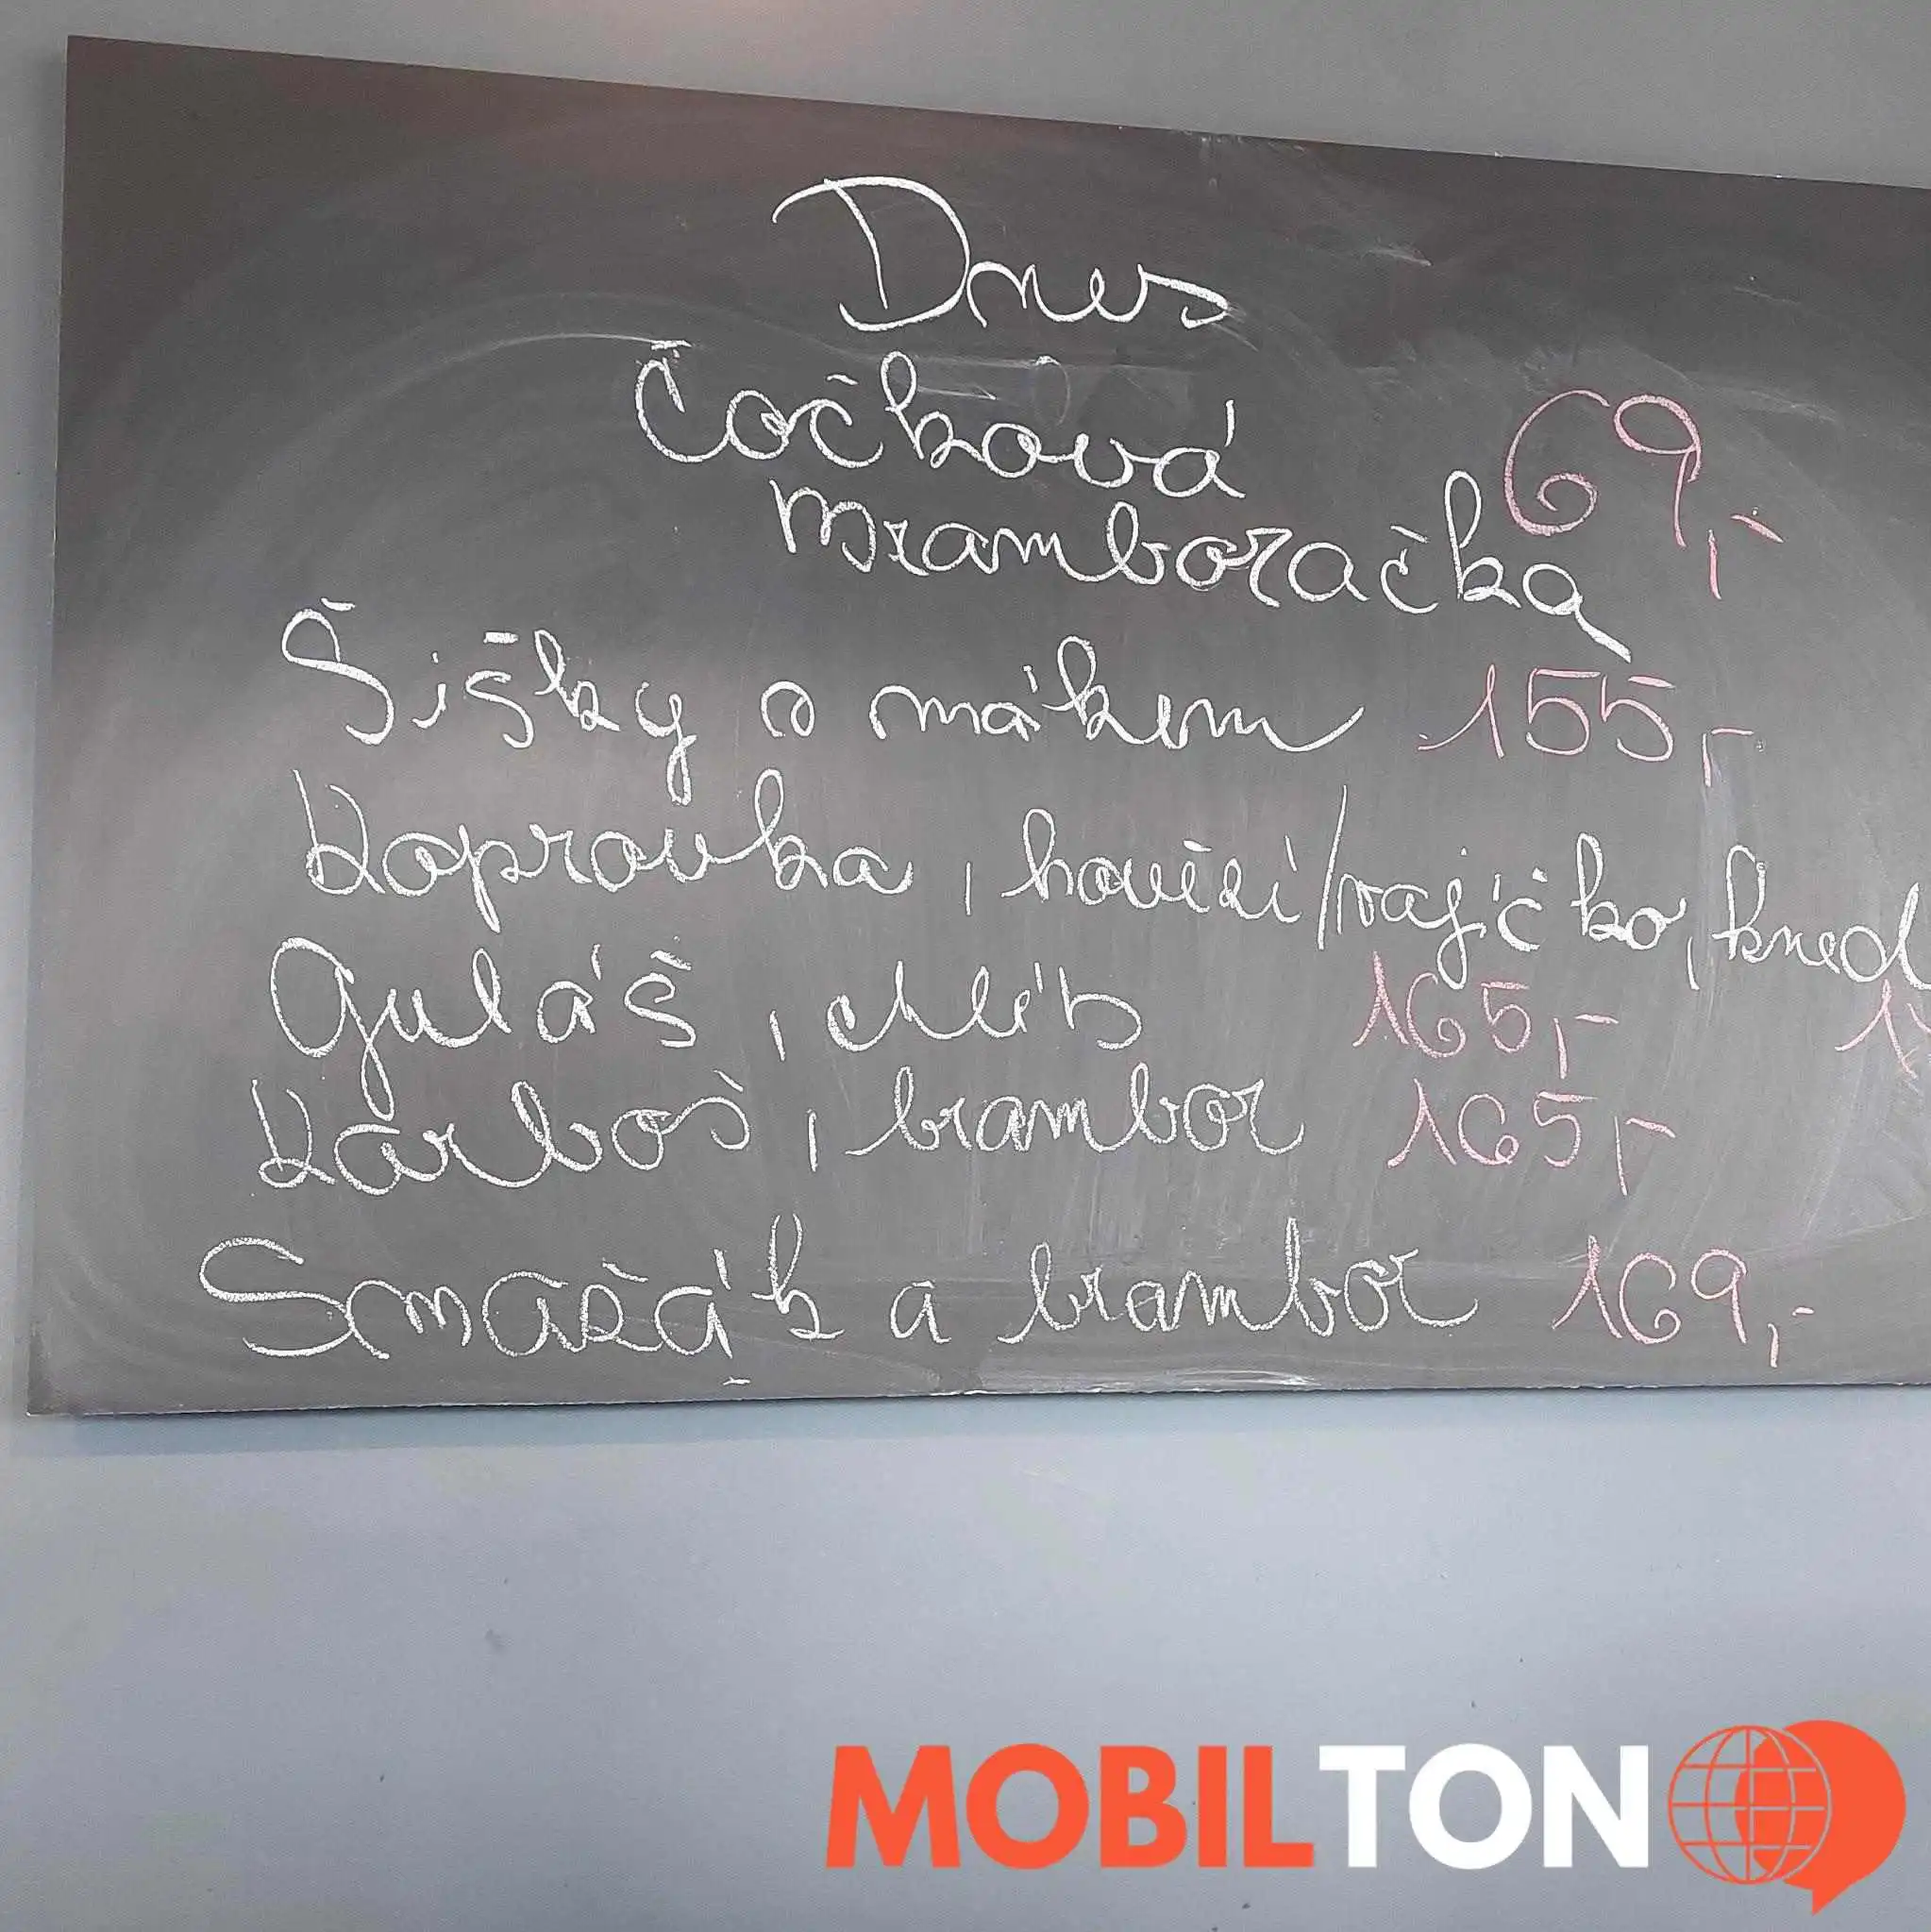 Dnes
Čočková 69,-
Mramboračka
Šišky s mákem 155,-
Koprovka, hovězí/vajíčko, knedl
Guláš, chléb 165,-
Karboš, brambor 165,-
Smažák a brambor 169,-
MOBILTON